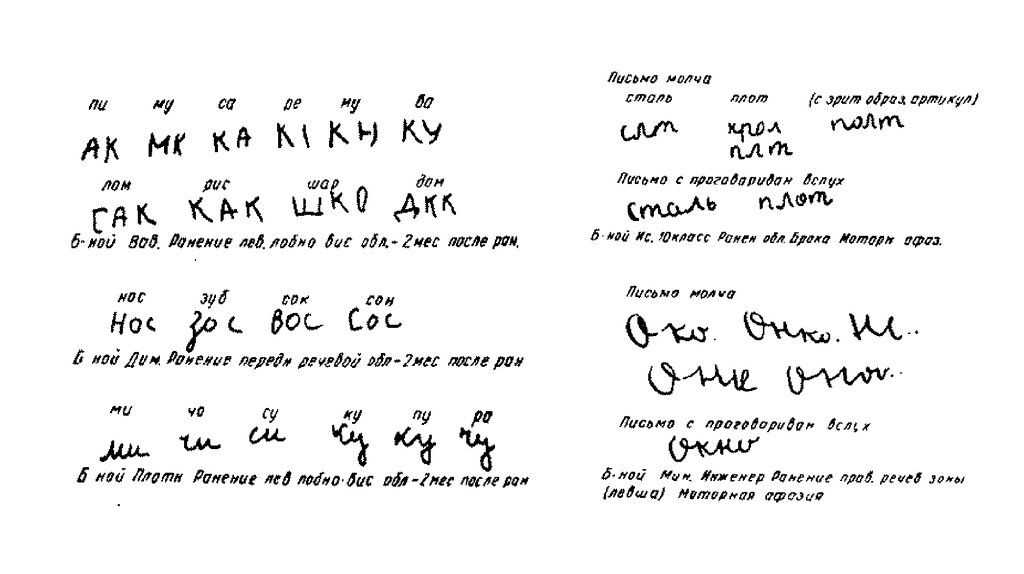 пи му са ре му ва
АК МК КА КІ КН КУ
лом рис шар дом
САК КАК ШКО ДКК
Б-ной Вав. Ранение лев. лобно вис обл.-2 мес после ран.
нос зуб сок сон
Нос зос вос Сос
Б ной Дим. Ранение передн речевой обл-2 мес после ран
ми чо су ку пу ра
ми чи си ку ку чу
Б ной Плотн Ранение лев лобно-вис обл-2 мес после ран
Письмо молча
сталь плот (с зрит образ. артикул)
слт крол полт
плт
Письмо с проговариван вслух
сталь плот
Б-ной Ис. 10 класс Ранен обл. Брока Моторн афаз.
Письмо молча
Око. Онко. Не..
Оне оног..
Письмо с проговариван вслух
окно
Б-ной Мин. Инженер Ранение прав. речев зоны
(левша) Моторная афазия